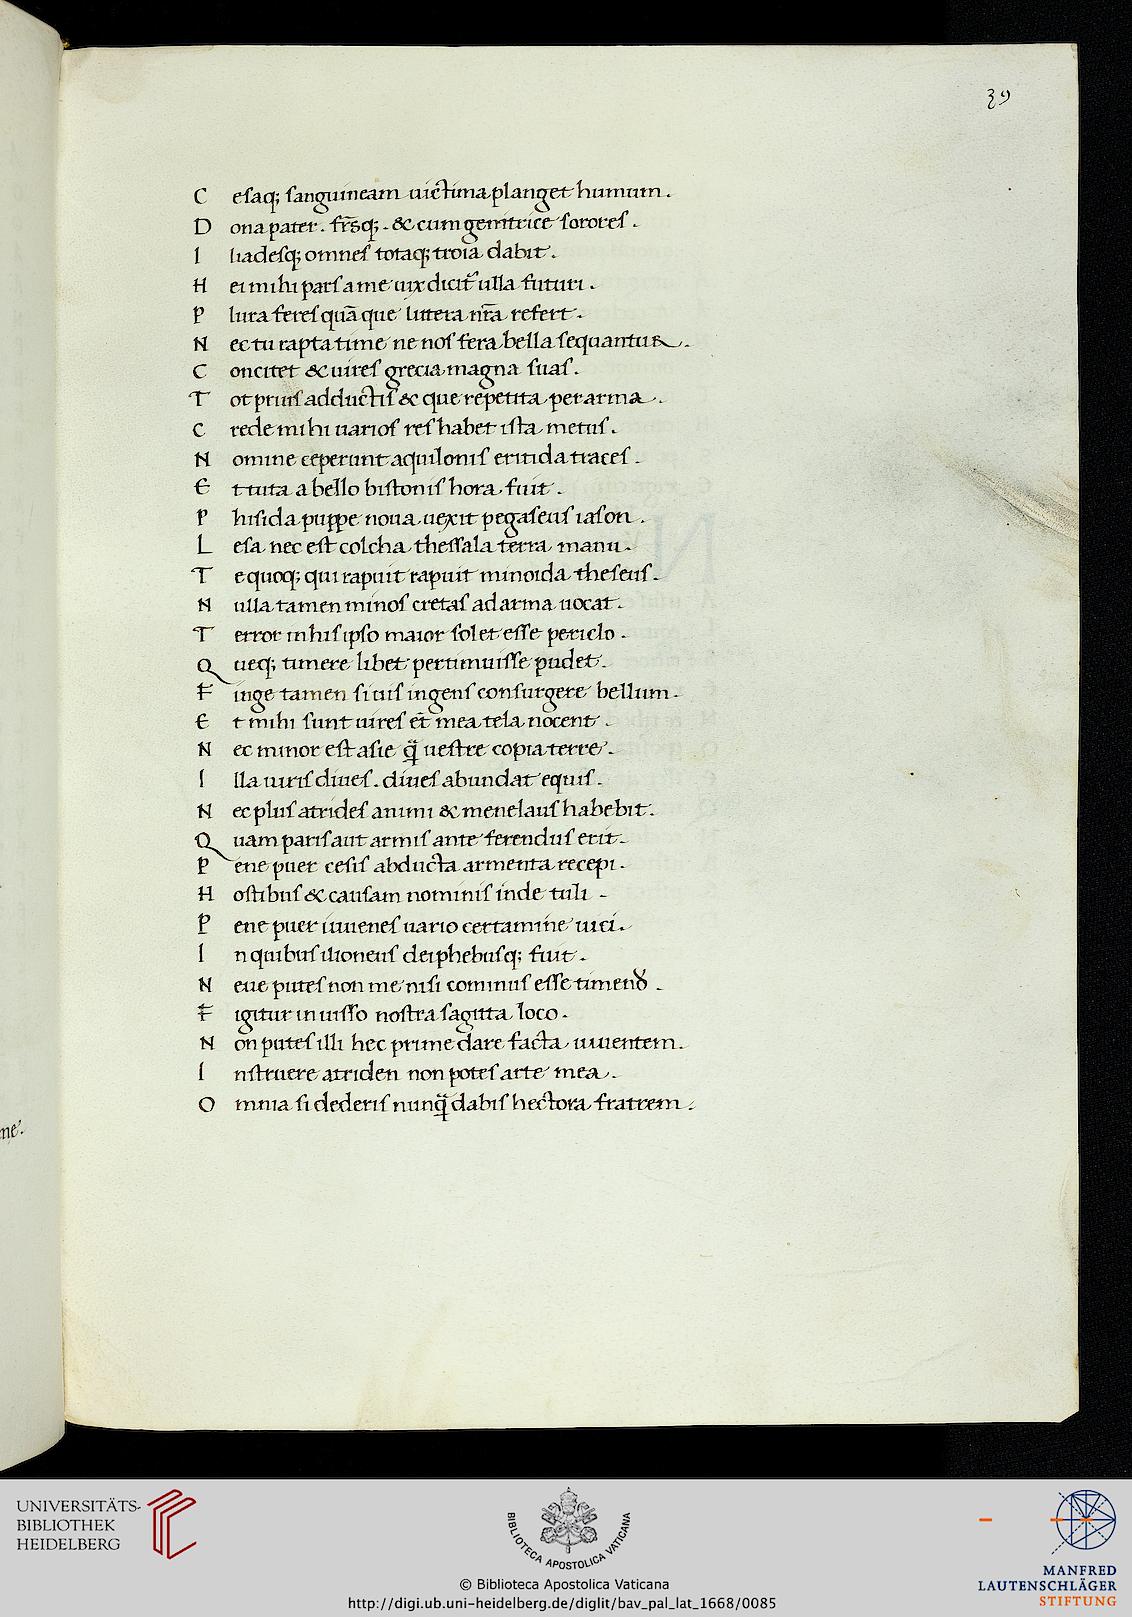 39
C esaq; sanguineam uictima planget humum.
D ona pater. fr̃sq;. & cum genitrice sorores.
I liadesq; omnes totaq; troia dabit.
H ei mihi pars a me uix dicit᷑ ulla futuri.
P lura feres quã que littera nr̃a refert.
N ec tu rapta time ne nos fera bella sequantur.
C oncitet & uires grecia magna suas.
T ot prius adductis & que repetita per arma.
C rede mihi uarios res habet ista metus.
N omine ceperunt aquilonis eritida traces.
E t tuta a bello bistonis hora fuit.
P hisida puppe noua uexit pegaseus iason.
L esa nec est colcha thessala terra manu.
T e quoq; qui rapuit rapuit minoida theseus.
N ulla tamen minos cretas ad arma uocat.
T error in his ipso maior solet esse periclo.
Q ueq; timere libet pertimuisse pudet.
F inge tamen si uis ingens consurgere bellum.
E t mihi sunt uires et̃ mea tela nocent.
N ec minor est asie q̃ uestre copia terre.
I lla uiris diues. diues abundat equis.
N ec plus atrides animi & menelaus habebit.
Q uam paris aut armis ante ferendus erit.
P ene puer cesis abducta armenta recepi.
H ostibus & causam nominis inde tuli.
P ene puer iuuenes uario certamine uici.
I n quibus ilioneus deiphebusq; fuit.
N eue putes non me nisi cominus esse timend̃.
F igitur in iusso nostra sagitta loco.
N on putes illi hec prime dare facta iuuentem.
I nstruere atriden non potes arte mea.
O mnia si dederis nunq̃ dabis hectora fratrem.
ne.
UNIVERSITÄTS-
BIBLIOTHEK
HEIDELBERG
BIBLIOTECA APOSTOLICA VATICANA
© Biblioteca Apostolica Vaticana
http://digi.ub.uni-heidelberg.de/diglit/bav_pal_lat_1668/0085
MANFRED
LAUTENSCHLÄGER
STIFTUNG